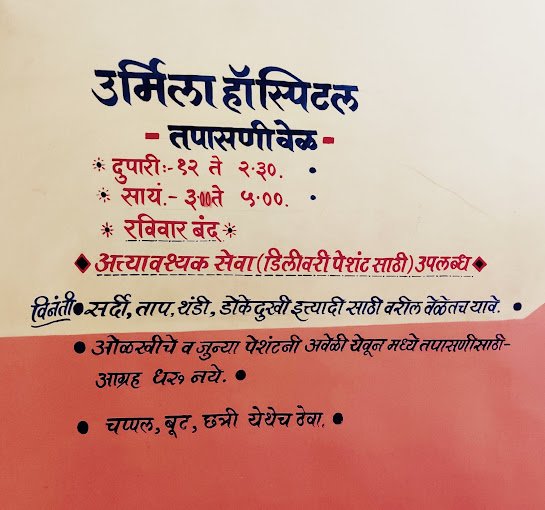 उर्मिला हॉस्पिटल
- तपासणी वेळ -
* दुपारी:- १२ ते २.३०. •
* सायं.- ३.००ते ५.००. •
* रविवार बंद *
◆ अत्यावश्यक सेवा (डिलीवरी पेशंट साठी) उपलब्ध ◆
विनंती • सर्दी, ताप, थंडी, डोकेदुखी इत्यादी साठी वरील वेळेतच यावे. •
• ओळखीचे व जुन्या पेशंटनी अवेळी येवून मध्ये तपासणीसाठी-
आग्रह धरु नये. •
• चप्पल, बूट, छत्री येथेच ठेवा. •